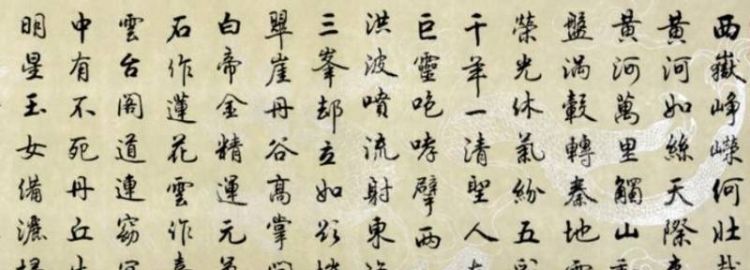 西嶽崢嶸何壯
黃河如絲天際
黃河萬里觸山
盤渦轂轉秦地
榮光休氣紛五
千年一清聖人
巨靈咆哮擘兩
洪波噴流射東
三峯却立如欲
翠崖丹谷高掌
白帝金精運元
石作蓮花雲作
雲台閣道連窈
中有不死丹丘
明星玉女備灑